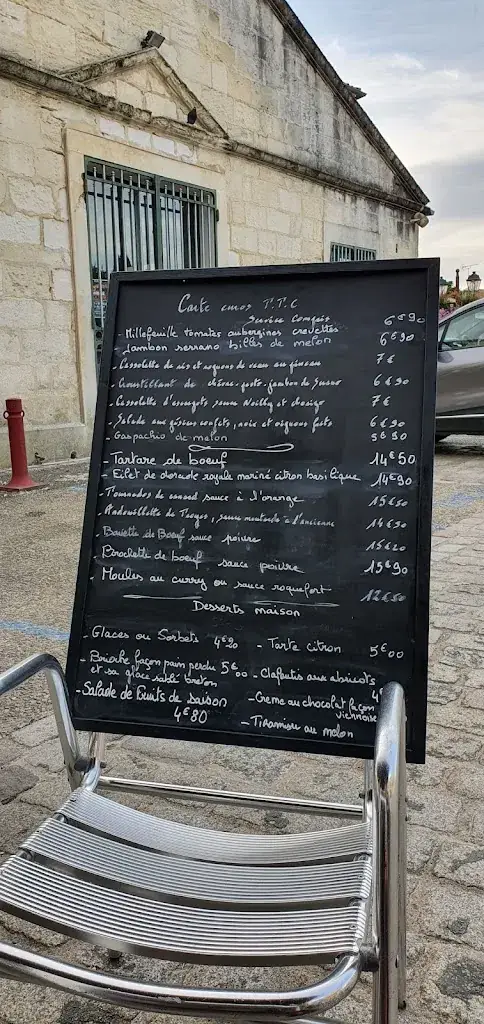 Carte euros T.T.C
Service compris
- Millefeuille tomates aubergines crevettes 6€90
- Jambon serrano billes de melon 6€90
- Cassolette de ris et rognons de veau au 7€
- Croustillant de chèvre, pesto, jambon de 6€90
- Cassolette d'escargots sauce Noilly et chorizo 7€
- Salade aux gésiers confits, noix et oignons frits 6€90
- Gaspachio de melon 5€50
- Tartare de boeuf 14€50
- Filet de dorade royale mariné citron basilique 14€90
- Tournedos de canard sauce à l'orange 15€50
- Andouillette de Troyes, sauce moutarde à l'ancienne 14€50
- Bavette de Boeuf sauce poivre 15€20
- Brochette de boeuf sauce poivre 15€90
- Moules au curry ou sauce roquefort 12€50
Desserts maison
- Glaces ou Sorbets 4€20
- Tarte citron 5€00
- Brioche façon pain perdu 5€00
et sa glace sablé breton
- Clafoutis aux abricots
- Salade de fruits de saison
4€80
- Crème au chocolat façon
viennoise
- Tiramisu au melon